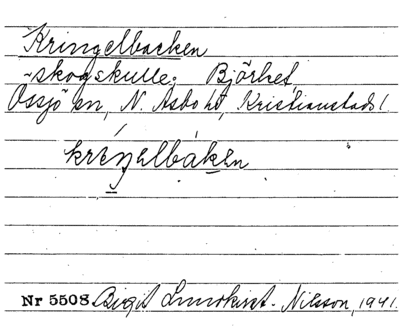 Kringelbacken
~skogskulle; Björket
Össjö sn, N. Åsbo hd, Kristianstads l.
kríŋelbàken
Nr 5508 Birgit Lundkvist-Nilsson, 1941.